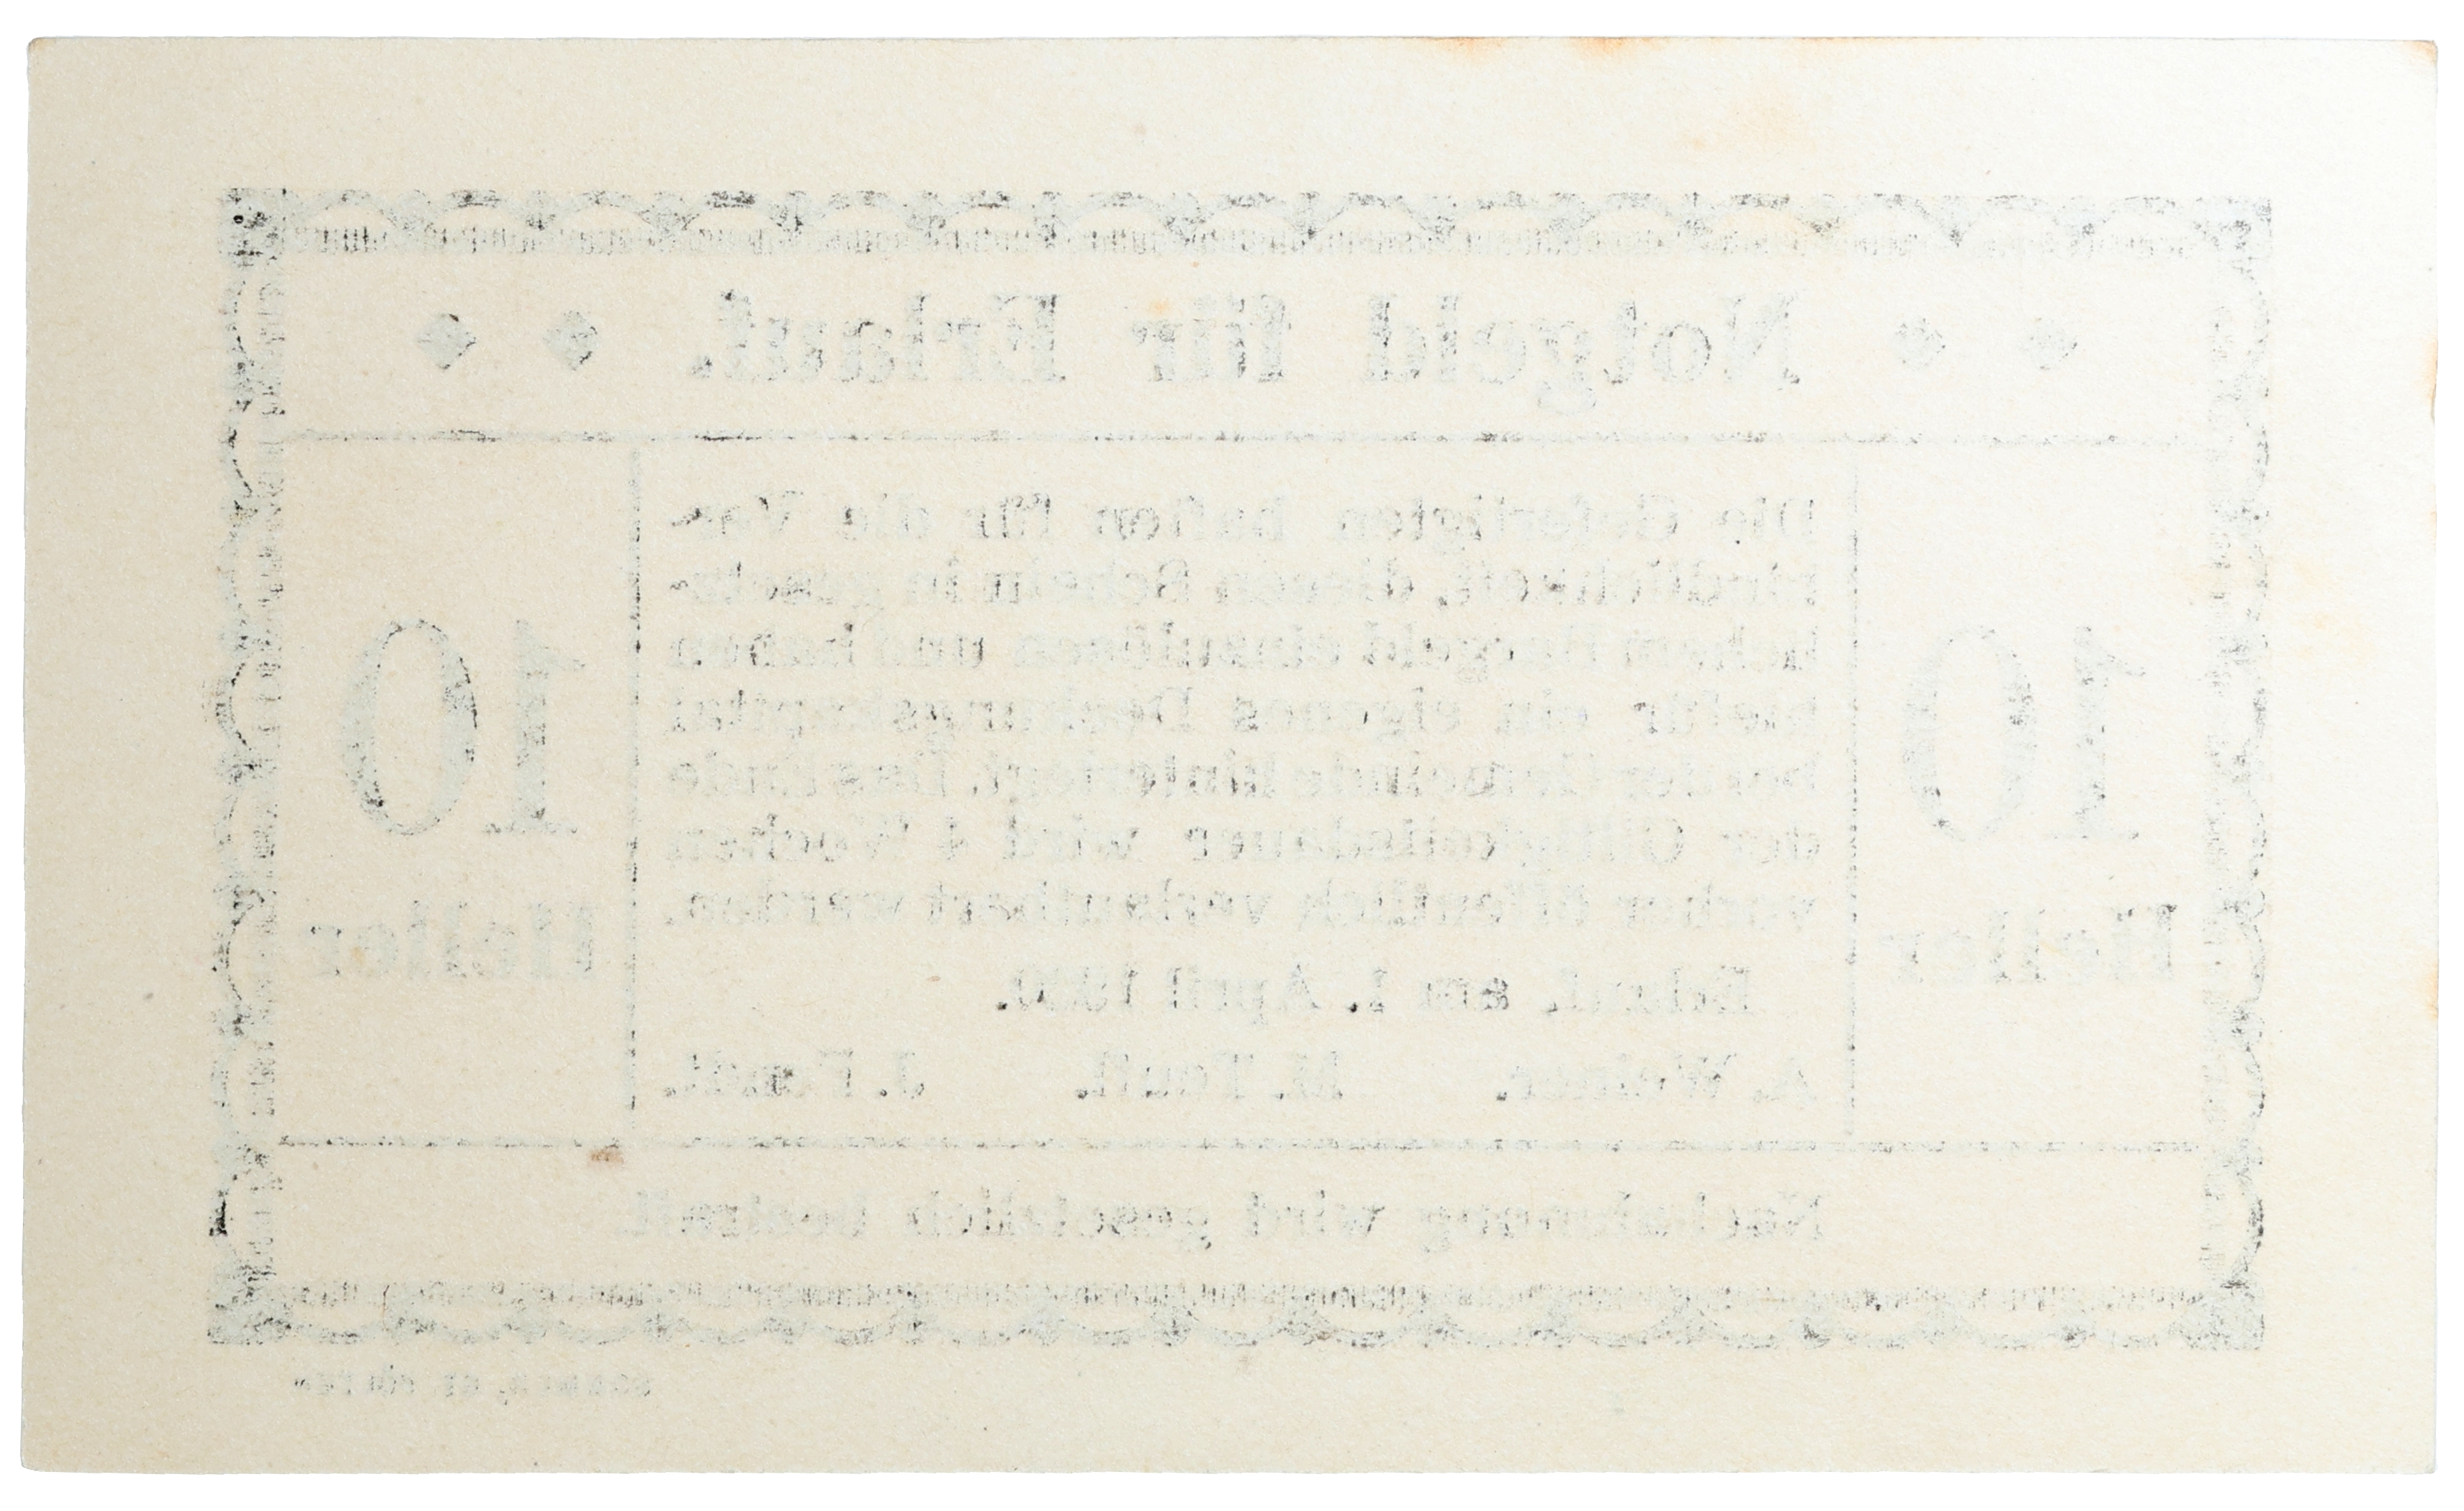 Notgeld für Erlauf.
10
Heller
Die Gefertigten haften für die Ver-
bindlichkeit, diesen Schein in gesetz-
lichem Bargeld einzulösen und haben
hiefür ein eigenes
Gemeinde hinterlegt. Das Ende
der Giltigkeitsdauer wird 4 Wochen
vorher öffentlich verlautbart werden.
Erlauf, am 1. April 1920.
A. M. J.
10
Heller
Nachahmung wird gesetzlich bestraft.
SOMMER, ST. PÖLTEN